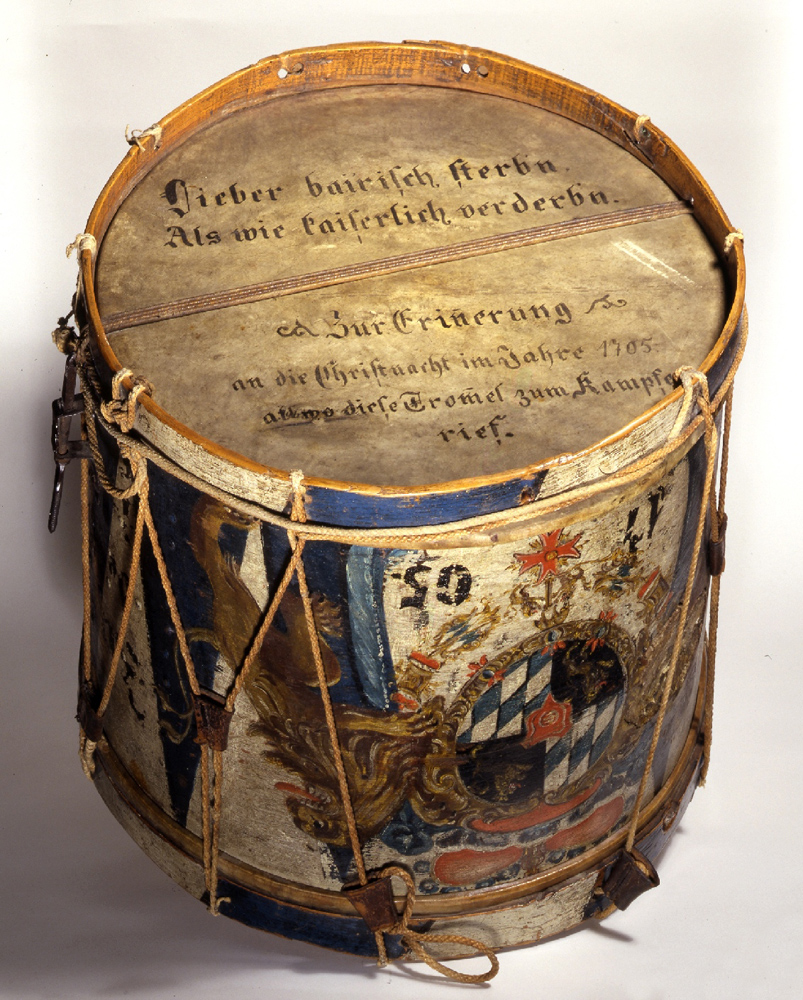 Lieber bairisch sterbn.
Als wie kaiserlich verderbn.
Zur Erin̄erung
an die Christnacht im Jahre 1705
allwo diese Trom̄el zum Kampfe
rief.
17
05